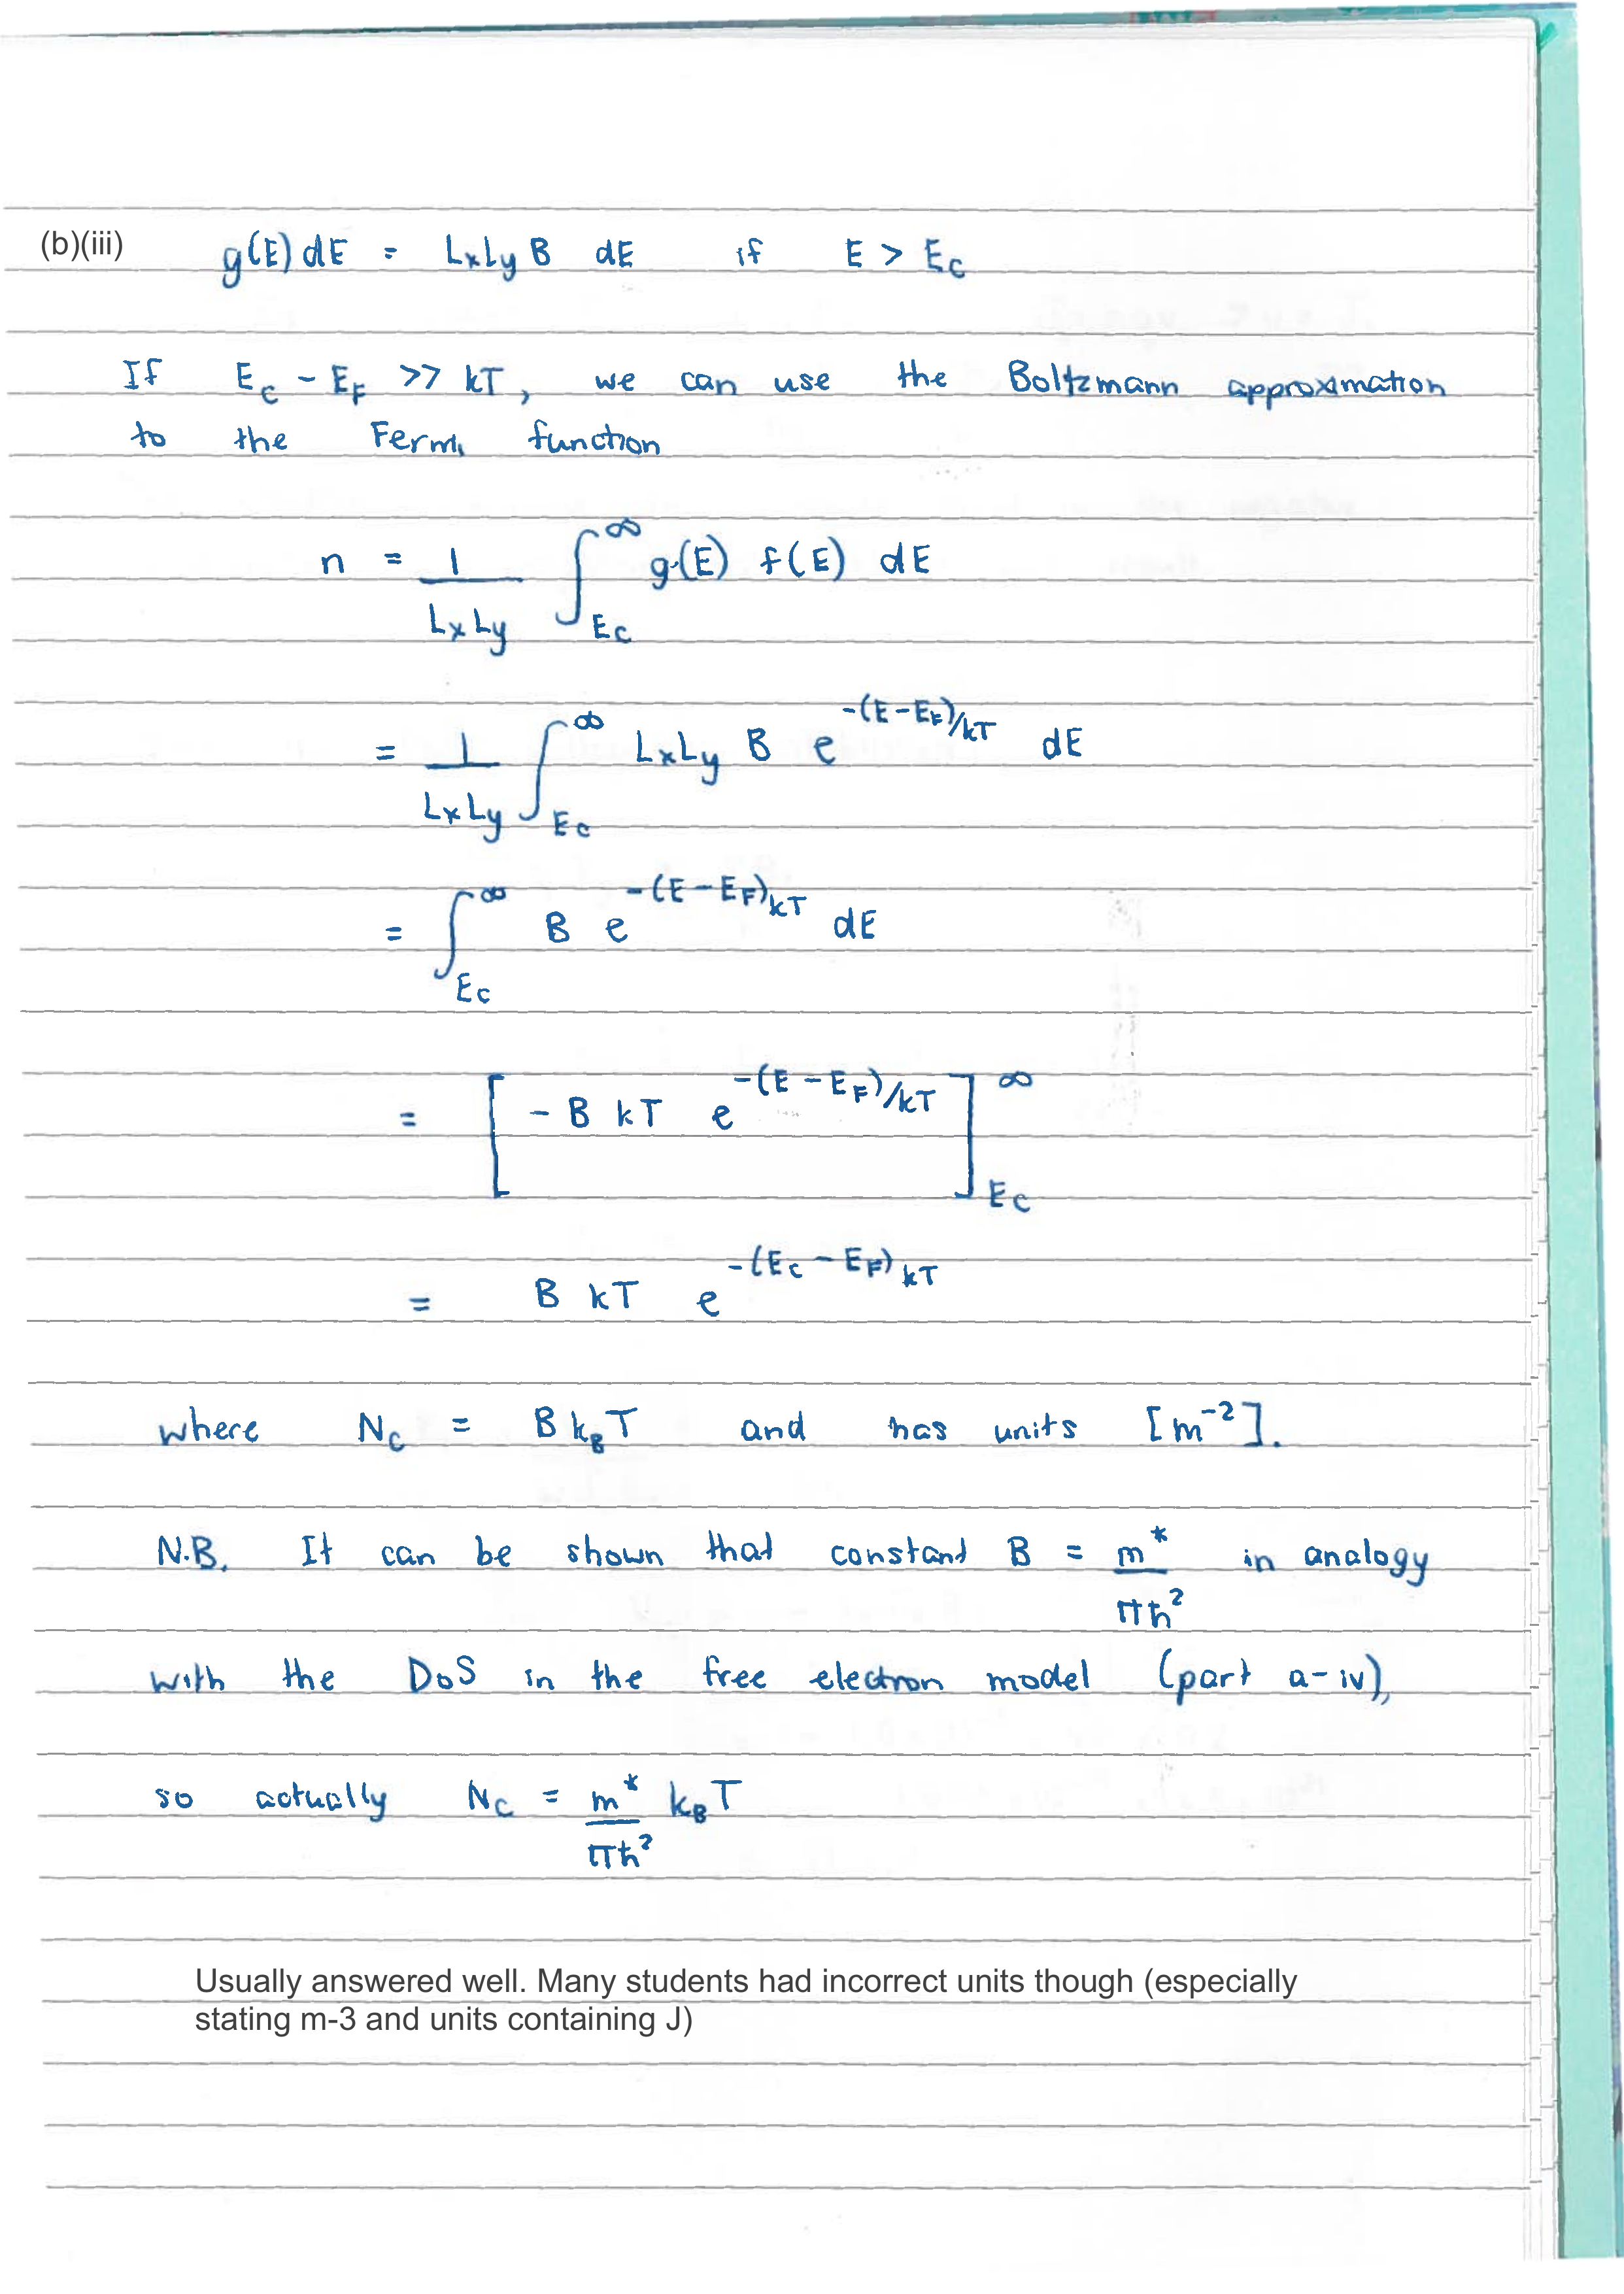 (b)(iii) g(E) dE = LxLy B dE if E > Ec
If Ec - EF >> kT, we can use the Boltzmann approximation
to the Fermi function
n = 1/(LxLy) ∫_Ec^∞ g(E) f(E) dE
= 1/(LxLy) ∫_Ec^∞ LxLy B e^{-(E-EF)/kT} dE
= ∫_Ec^∞ B e^{-(E-EF)/kT} dE
= [ - B kT e^{-(E-EF)/kT} ]_Ec^∞
= B kT e^{-(Ec-EF)/kT}
where Nc = B kBT and has units [m⁻²].
N.B. It can be shown that constant B = m*/πħ² in analogy
with the DoS in the free electron model (part a-iv),
so actually Nc = m*/πħ² kBT
Usually answered well. Many students had incorrect units though (especially
stating m-3 and units containing J)